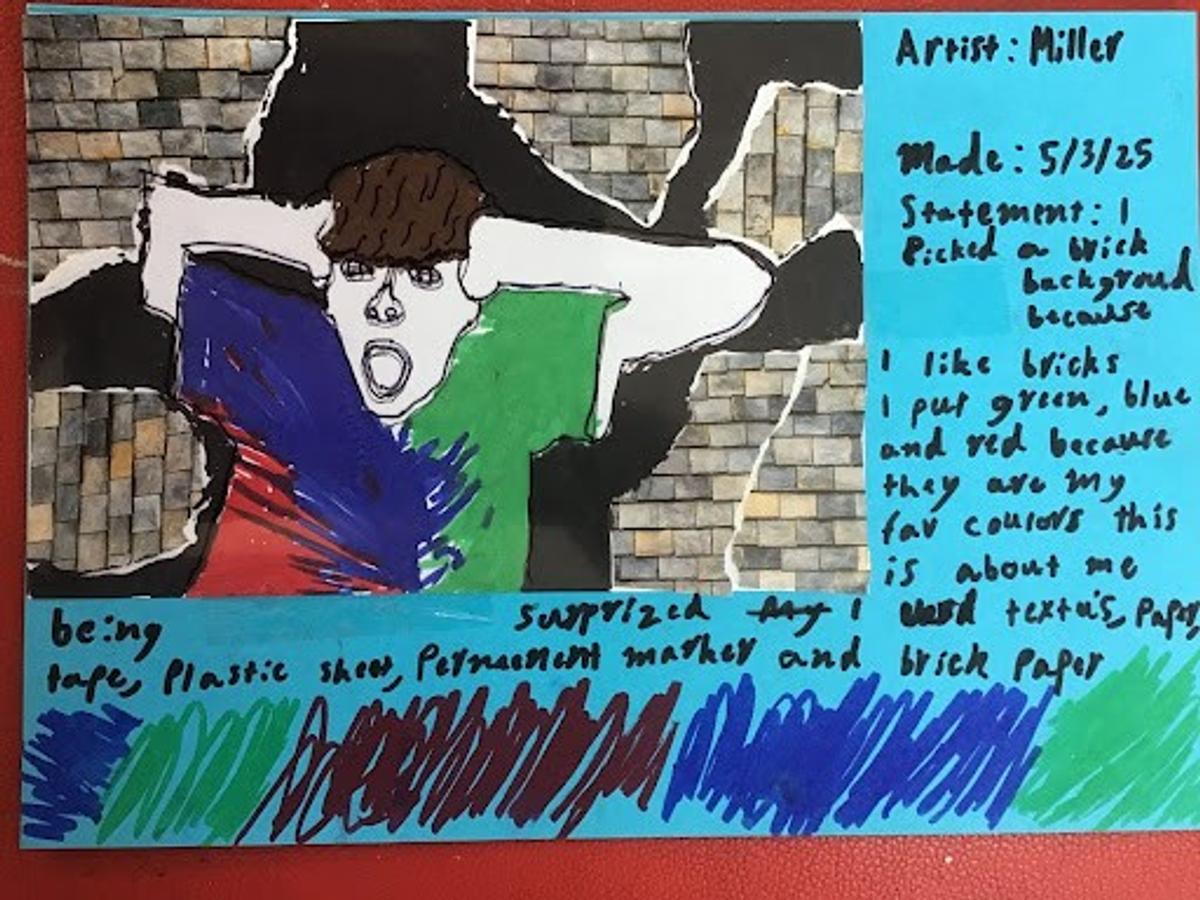 Artist: Miller
Made: 5/3/25
Statement: I
Picked a brick
background
because
I like bricks
I put green, blue
and red because
they are my
fav coulors this
is about me
being surprized I used texta's, Paper,
tape, Plastic sheet, Permenent marker and brick Paper